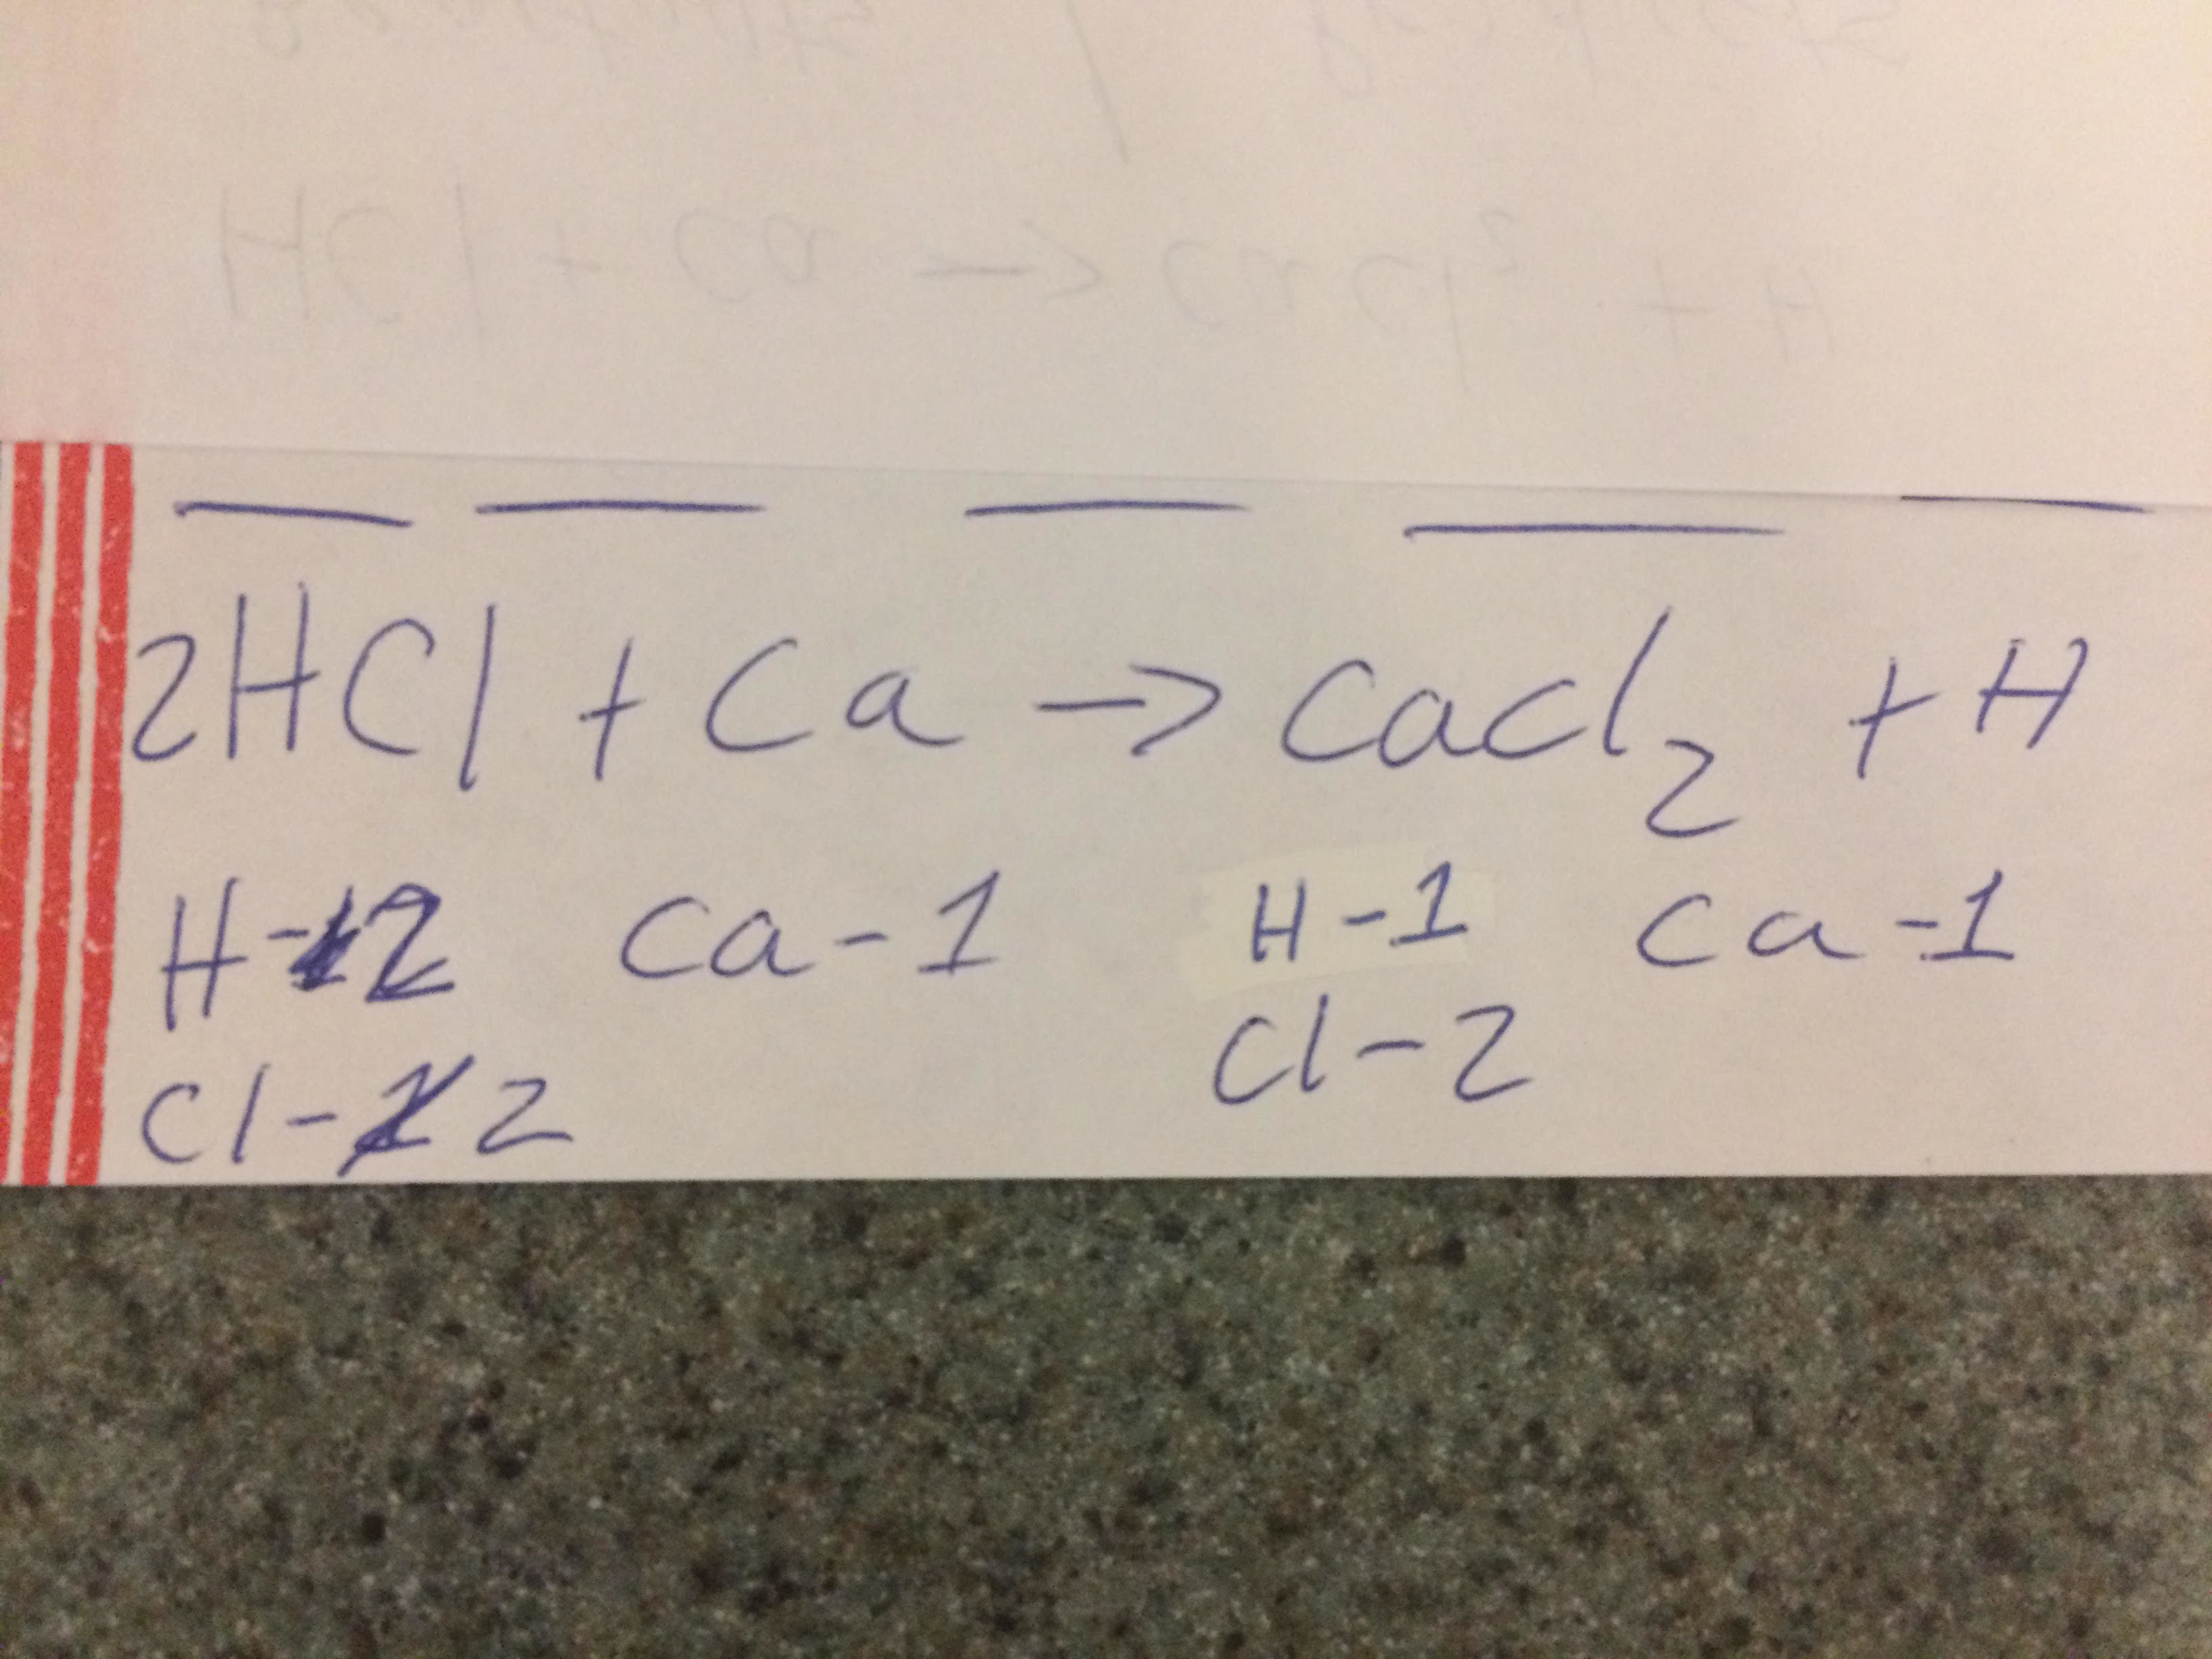 HCl + Ca → CaCl2 + H
2HCl + Ca → CaCl₂ + H
H-12 Ca-1 H-1 Ca-1
Cl-1 2 Cl-2